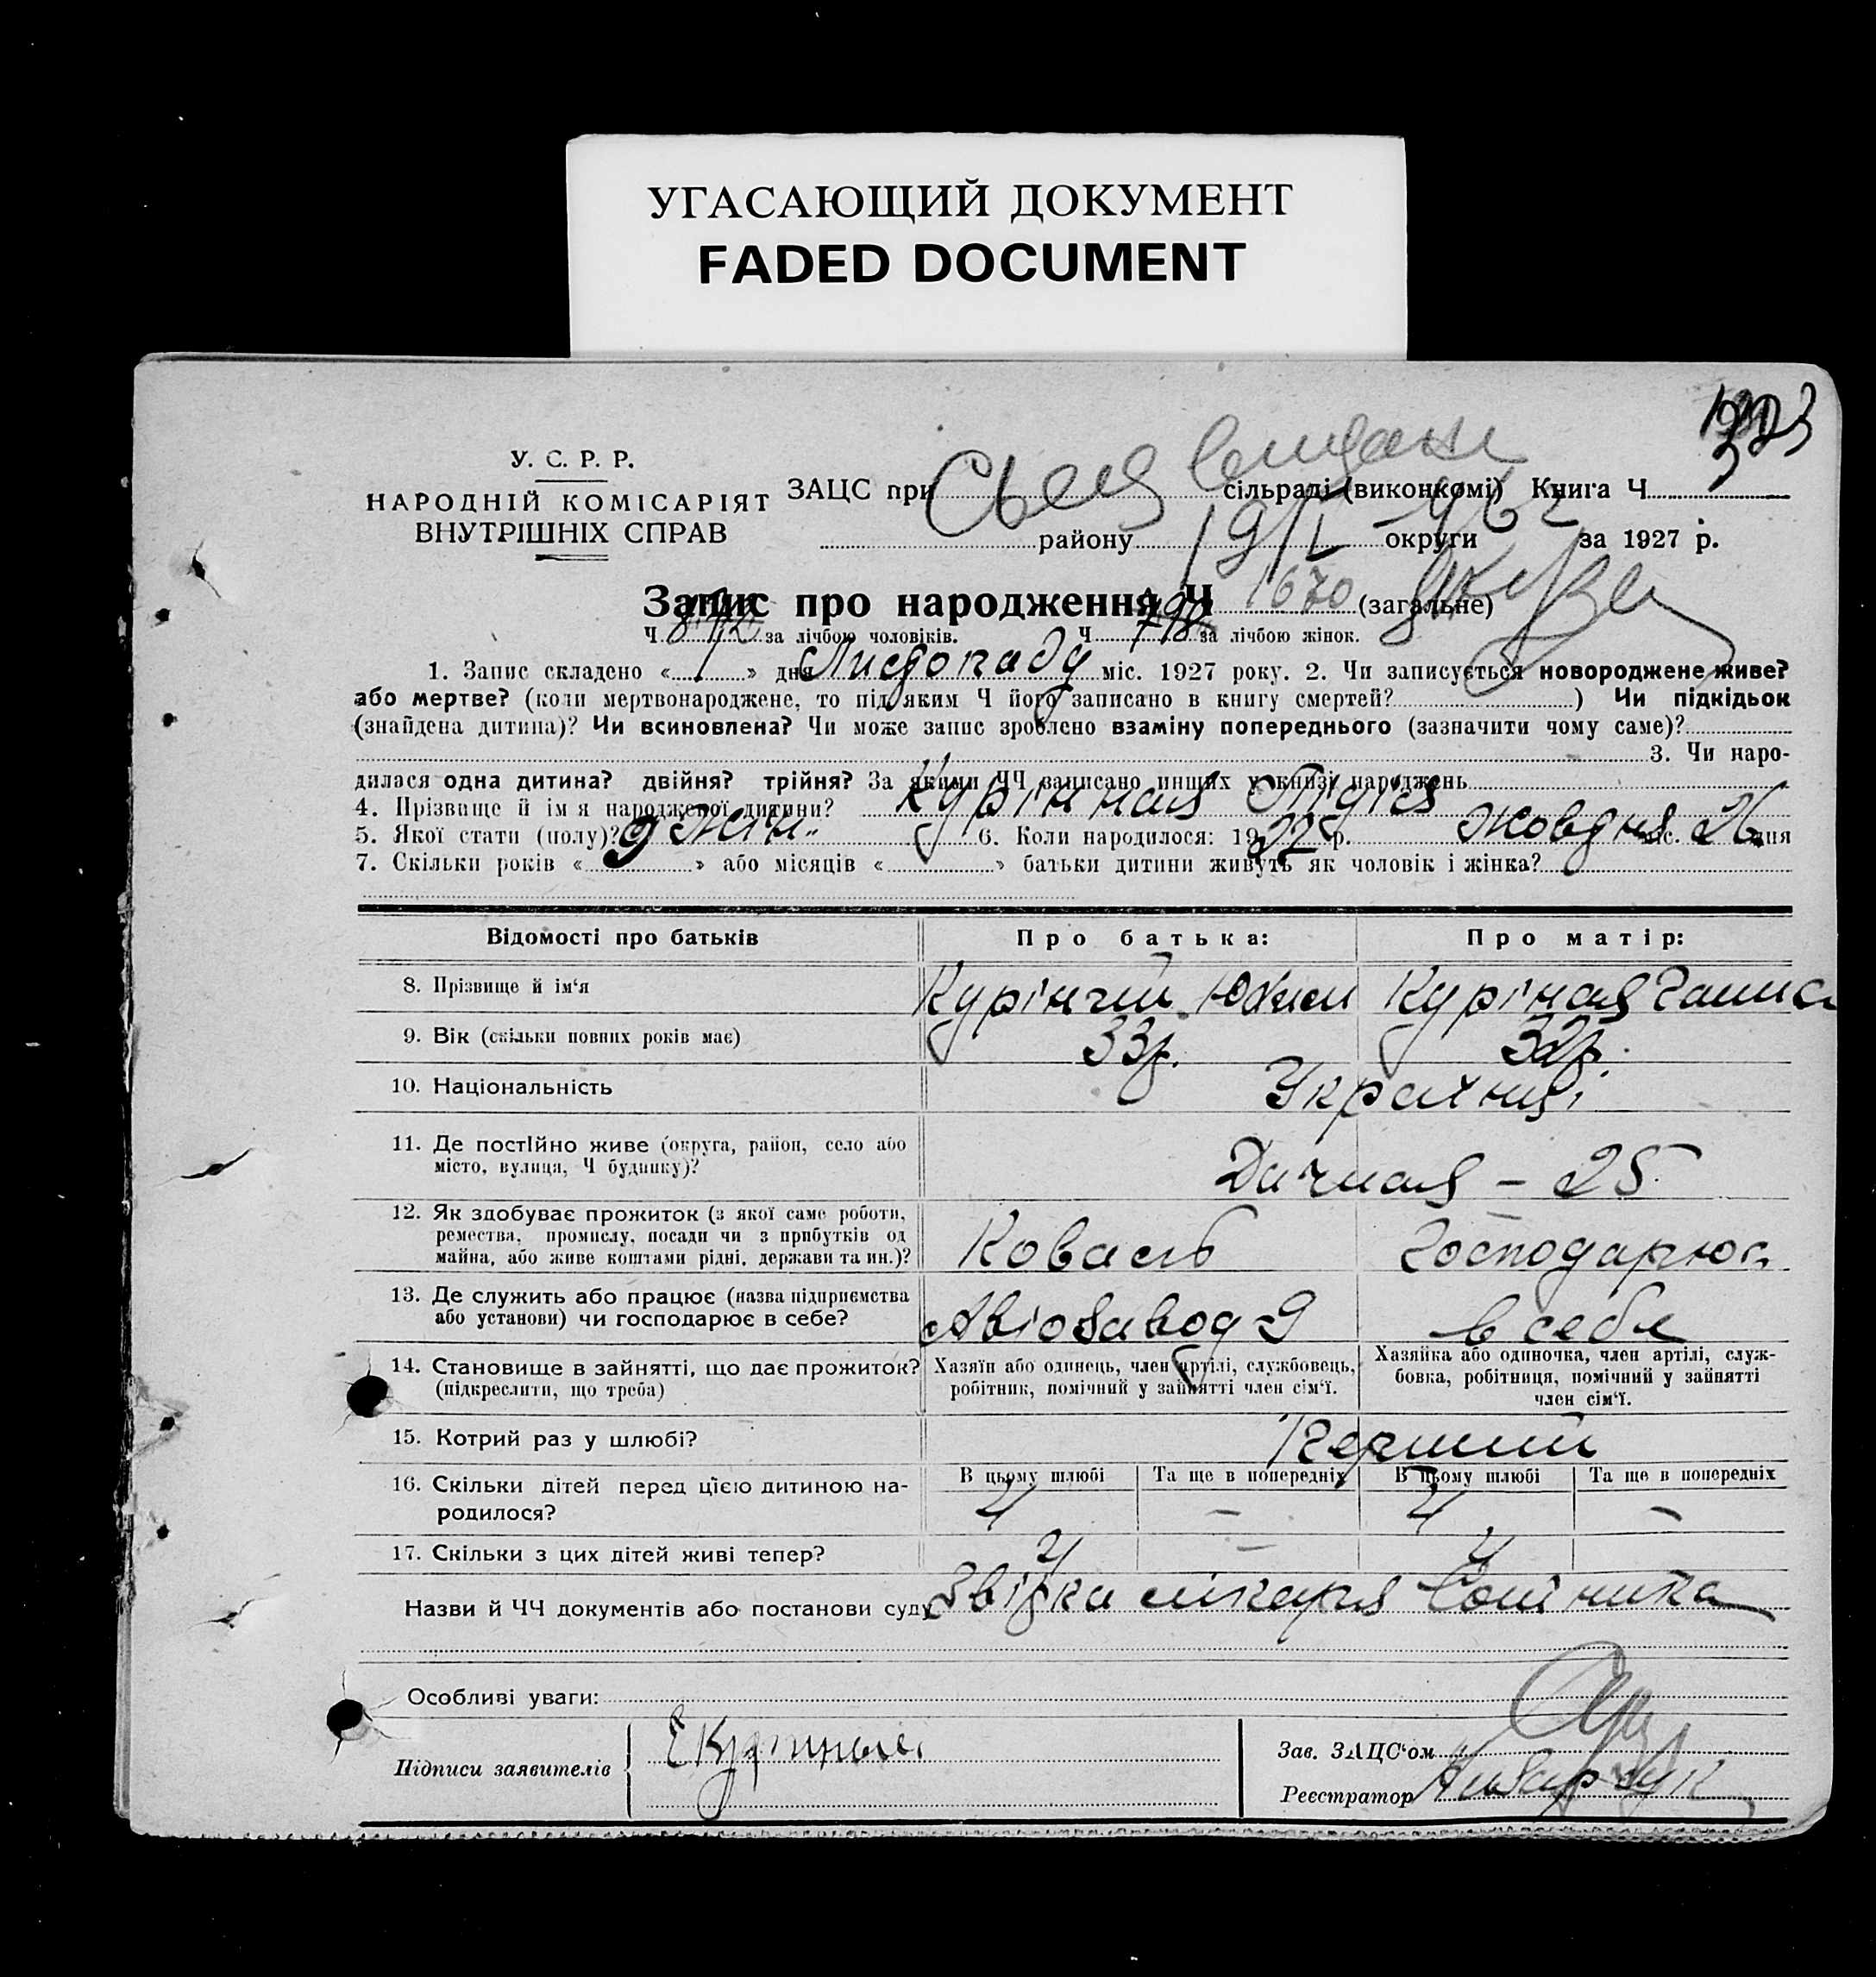 УГАСАЮЩИЙ ДОКУМЕНТ
FADED DOCUMENT
323
У. С. Р. Р.
НАРОДНІЙ КОМІСАРІЯТ
ВНУТРІШНІХ СПРАВ
ЗАЦС при сільраді (виконкомі) Книга Ч.
району округи за 1927 р.
Запис про народження Ч 1670 (загальне)
Ч 872 за лічбою чоловіків. Ч 798 за лічбою жінок.
1. Запис складено « » дня Листопаду міс. 1927 року. 2. Чи записується новороджене живе?
або мертве? (коли мертвонароджене, то під яким Ч його записано в книгу смертей? ) Чи підкідьок
(знайдена дитина)? Чи всиновлена? Чи може запис зроблено взаміну попереднього (зазначити чому саме)?
3. Чи наро-
дилася одна дитина? двійня? трійня? За якими ЧЧ записано инших у книзі народжень
4. Прізвище й імя народженої дитини? Курінная Лідія
5. Якої стати (полу)? жін. 6. Коли народилося: 1927 р. жовдня міс. 26 дня
7. Скільки років « 9 » або місяців « » батьки дитини живуть як чоловік і жінка?
Відомості про батьків Про батька: Про матір:
8. Прізвище й ім'я Курінчий Юхим Куріная Ганна
9. Вік (скільки повних років має) 33р. 32р.
10. Національність Українці
11. Де постійно живе (округа, район, село або
місто, вулиця, Ч будинку)? Дачная – 25
12. Як здобуває прожиток (з якої саме роботи,
ремества, промислу, посади чи з прибутків од
майна, або живе коштами рідні, держави та ин.)? Коваль Господарює
13. Де служить або працює (назва підприємства
або установи) чи господарює в себе? Авіозавод 9 в себе
14. Становище в зайнятті, що дає прожиток?
(підкреслити, що треба)
Хазяїн або одинець, член артілі, службовець,
робітник, помічний у зайнятті член сім'ї.
Хазяйка або одиночка, член артілі, служ-
бовка, робітниця, помічний у зайнятті
член сім'ї.
15. Котрий раз у шлюбі? Перший
В цьому шлюбі Та ще в попередніх В цьому шлюбі Та ще в попередніх
16. Скільки дітей перед цією дитиною на-
родилося? 4 – 4 –
17. Скільки з цих дітей живі тепер? 2 – 2
Назви й ЧЧ документів або постанови суду Звідка лікаря Сотника
Особливі уваги:
Підписи заявителів
Зав. ЗАЦС'ом
Реєстратор